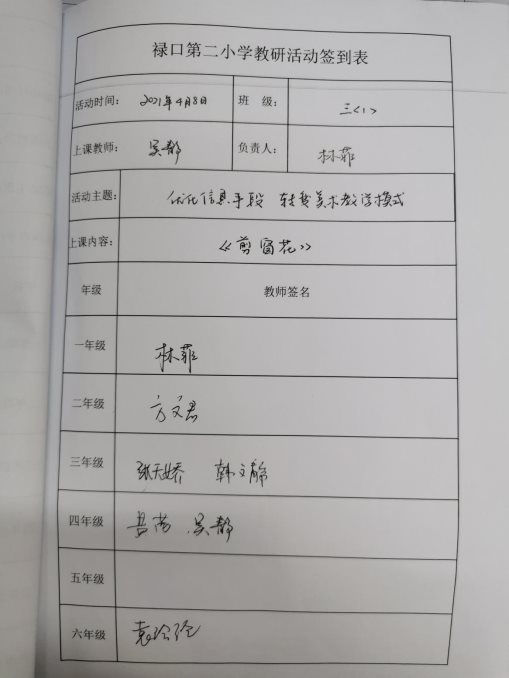 禄口第二小学教研活动签到表
活动时间： 2021年4月8日 班 级： 三〈1〉
上课教师： 吴静 负责人： 林菲
活动主题： 优化信息手段 转变美术教学模式
上课内容： 《剪窗花》
年级 教师签名
一年级 林菲
二年级 方文君
三年级 张天娇 韩文静
四年级 吴静
五年级
六年级